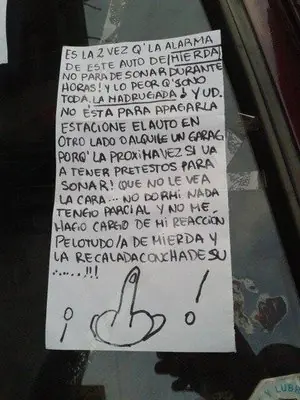 ES LA 2 VEZ Q' LA ALARMA
DE ESTE AUTO DE MIERDA
NO PARA DE SONAR DURANTE
HORAS! Y LO PEOR Q' SONO
TODA LA MADRUGADA! Y UD.
NO ESTA PARA APAGARLA
ESTACIONE EL AUTO EN
OTRO LADO O ALQUILE UN GARAG
PORQ' LA PROXIMA VEZ SI VA
A TENER PRETESTOS PARA
SONAR! QUE NO LE VEA
LA CARA... NO DORMI NADA
TENGO PARCIAL Y NO ME
HAGO CARGO DE MI REACCIÓN
PELOTUDO/A DE MIERDA Y
LA RECALADA CONCHA DE SU
......!!!
¡ !
Y LUBR